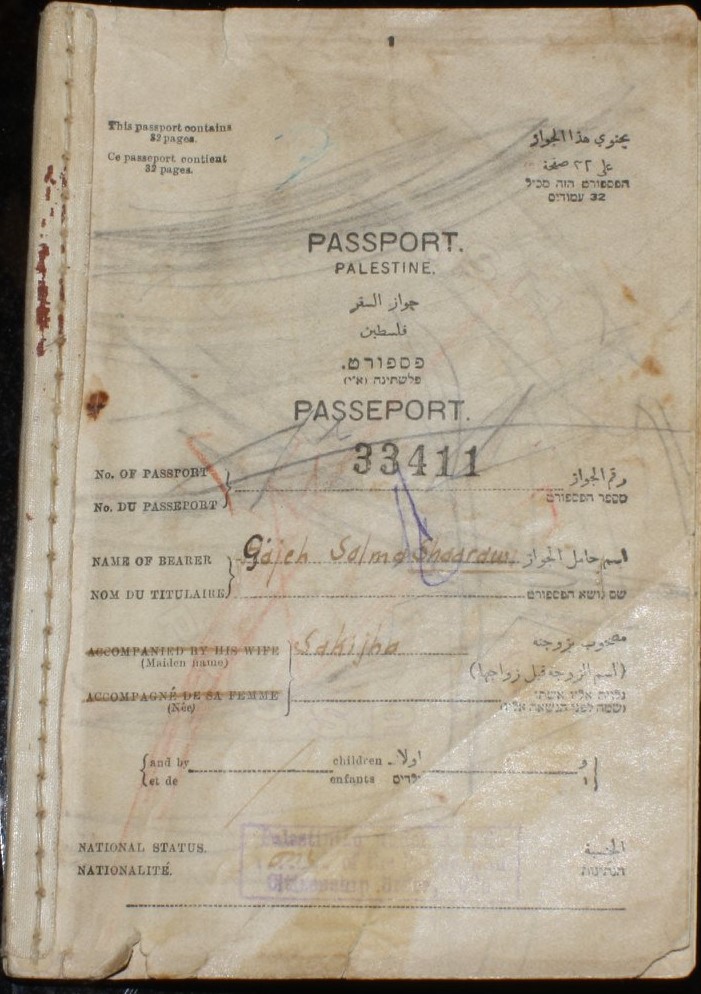 This passport contains
32 pages.
Ce passeport contient
32 pages.
يحتوي هذا الجواز
على ٣٢ صفحة
הפספורט הזה מכיל
32 עמודים
PASSPORT.
PALESTINE.
جواز السفر
فلسطين
פספורט.
פלשתינה (א״י)
PASSEPORT.
33411
No. OF PASSPORT
رقم الجواز
No. DU PASSEPORT
מספר הפספורט
NAME OF BEARER
Gajeh Salma Shaarawi
اسم حامل الجواز
NOM DU TITULAIRE
שם נושא הפספורט
ACCOMPANIED BY HIS WIFE
(Maiden name)
Sakijha
مصحوب بزوجته
(اسم الزوجة قبل زواجها)
ACCOMPAGNÉ DE SA FEMME
(Née)
נלוית אליו אשתו
(ושמה לפני הנשאה אליו)
and by
children
اولاد
و
et de
enfants
ילדים
ו
NATIONAL STATUS.
الجنسية
NATIONALITÉ.
הנתינות
Palestinian
Citizenship Order,